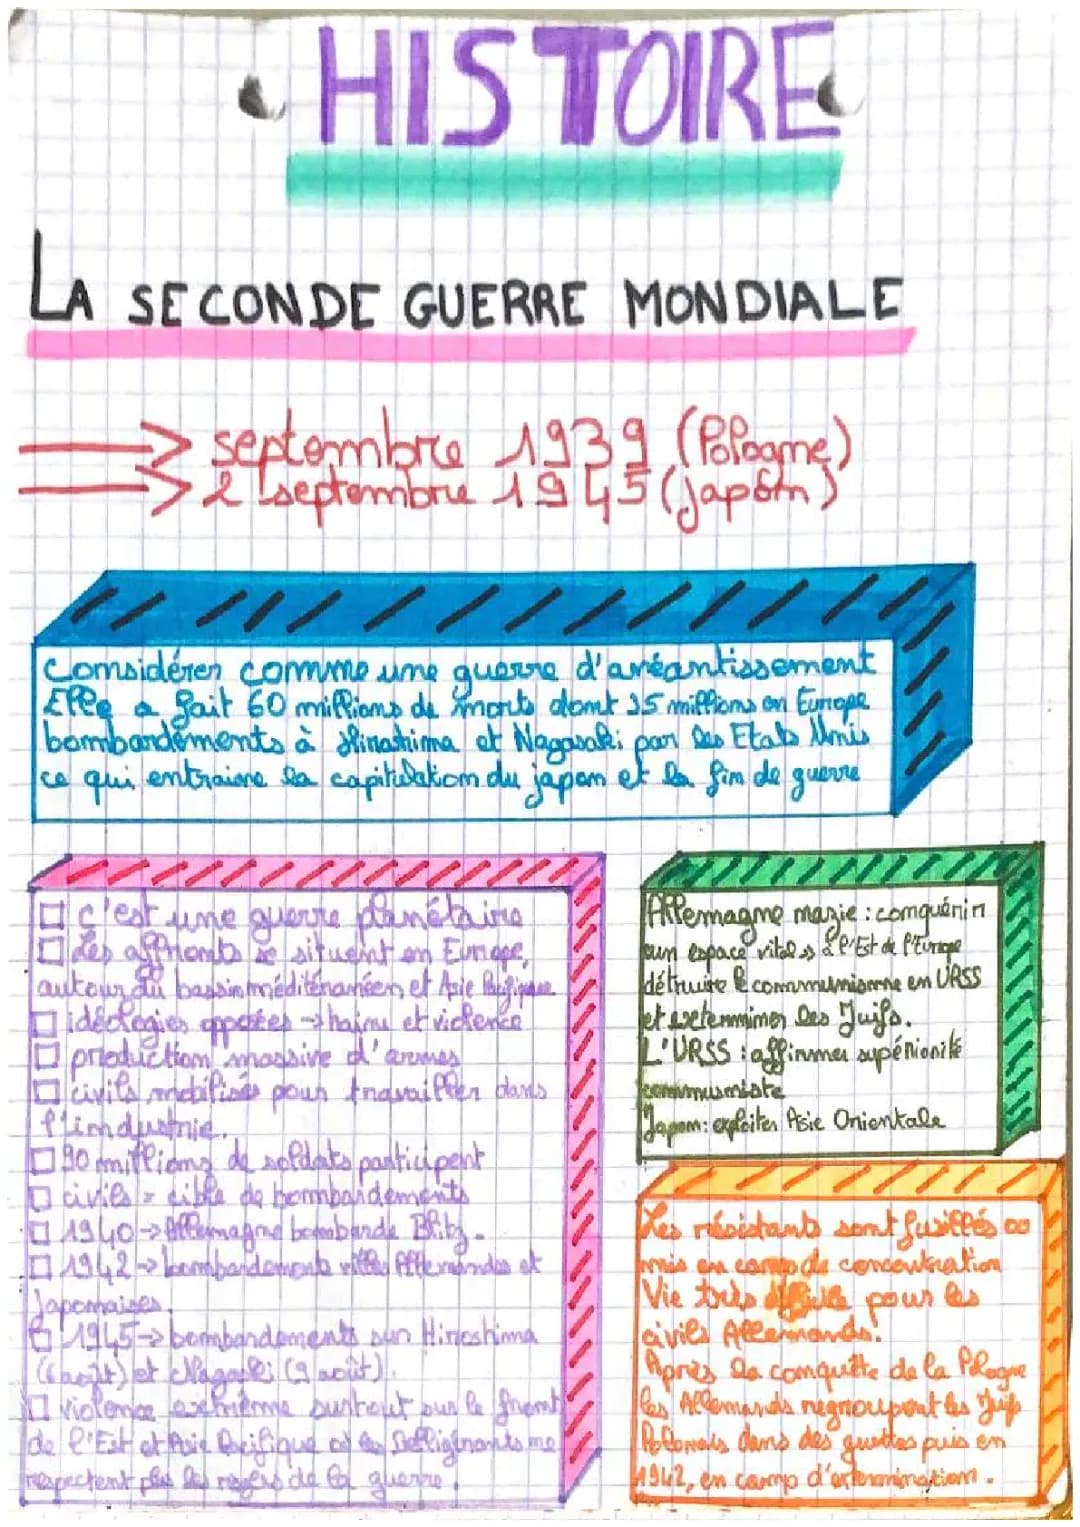 HISTOIRE
LA SECONDE GUERRE MONDIALE
septembre 1939 (Pologne)
2 septembre 1945 (japon)
Considérer comme une guerre d'anéantissement
Elle a fait 60 millions de morts dont 35 millions en Europe
bombardements à Hirashima et Nagasaki par les Etats Unis
ce qui entraine la capitulation du japon et la fin de guerre
c'est une guerre planétaire
Les affronts se situent en Europe,
autour du bassin méditéranéen et Asie Pacifique
idéologies opposées → haine et violence
production massive d'armes
civils mobilisés pour travailler dans
l'industrie.
90 millions de soldats participent
civils = cible de bombardements
1940 → Allemagne bombarde Blitz.
1942 → bombardements villes Allemandes et
Japonaises.
1945 → bombardements sur Hiroshima
(6 août) et Nagasaki (9 août).
violence extrême surtout sur le front
de l'Est et Asie Pacifique où les belligérants ne
respectent plus les règles de la guerre.
Allemagne nazie : conquérir
un espace vital » à l'Est de l'Europe
détruire le communisme en URSS
et exterminer les Juifs.
L'URSS : affirmer supériorité
communiste
Japon : exploiter Asie Orientale
Les résistants sont fusillés ou
mis en camp de concentration
Vie très difficile pour les
civils Allemands.
Après la conquête de la Pologne
les Allemands regroupent les Juifs
Polonais dans des guettos puis en
1942, en camp d'extermination.